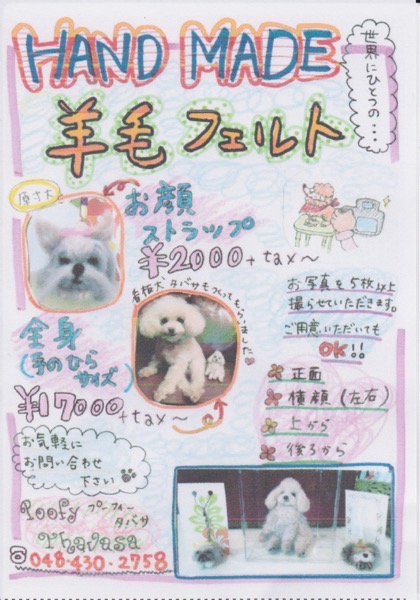 HAND MADE
世界にひとつの…
羊毛フェルト
原寸大
お顔
ストラップ
¥2000+tax〜
看板犬タバサもつくってもらいました♡
全身
(手のひら
サイズ)
¥17000+tax〜
お写真を5枚以上
撮らせていただきます。
ご用意いただいても
OK!!
正面
横顔(左右)
上から
後ろから
お気軽に
お問い合わせ
下さい
Poofy プーフィー
タバサ
Thavasa
☎048-430-2758